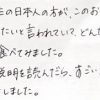 生の日本人の方が、このお
たいと言われていて、どんな
食べてみました。
説明を読んだら、すごい
しました。